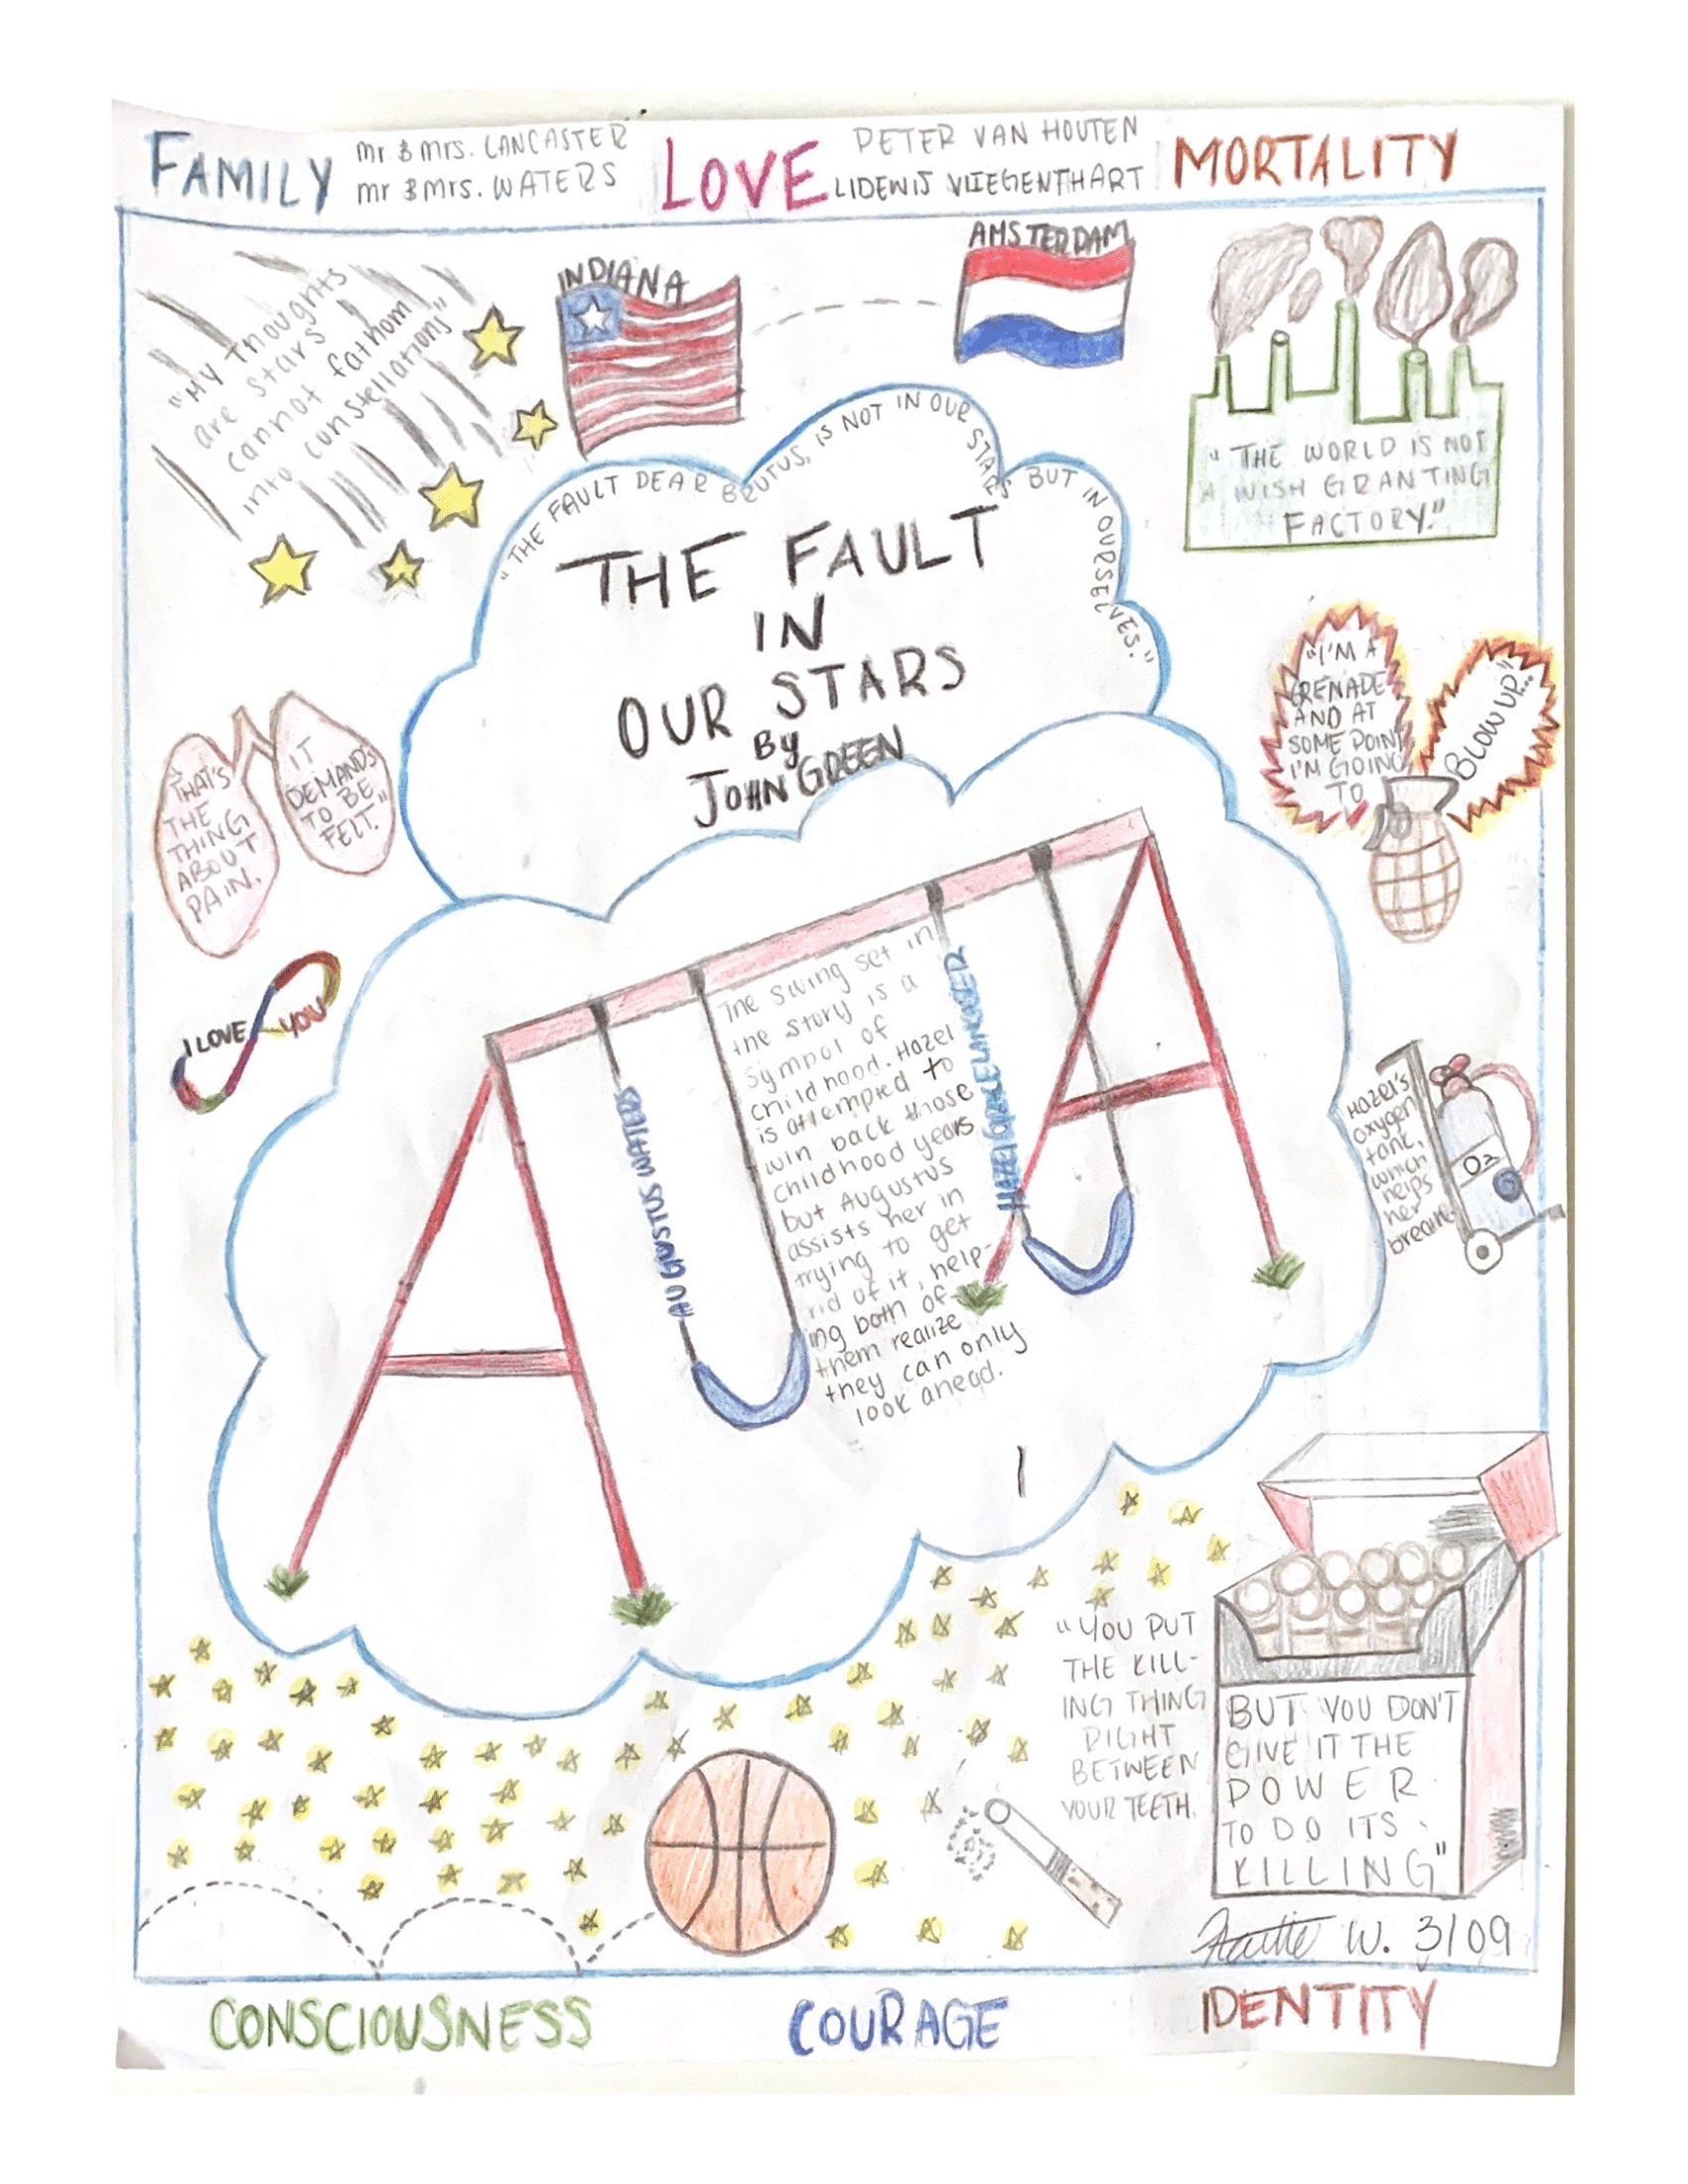 FAMILY
mr & mrs. LANCASTER
mr & mrs. WATERS
LOVE
PETER VAN HOUTEN
LIDEWIJ VLIEGENTHART
MORTALITY
"My thoughts
are stars
cannot fathom
into constellations"
INDIANA
AMSTERDAM
"THE WORLD IS NOT
A WISH GRANTING
FACTORY."
"THE FAULT DEAR BRUTUS, IS NOT IN OUR STARS BUT IN OURSELVES."
THE FAULT
IN
OUR STARS
By
JOHN GREEN
"I'M A
GRENADE
AND AT
SOME POINT
I'M GOING
TO
BLOW UP..."
"THAT'S
THE
THING
ABOUT
PAIN,
IT
DEMANDS
TO BE
FELT."
I LOVE YOU
AUGUSTUS WATERS
The swing set in
the story is a
symbol of
childhood. Hazel
is attempted to
win back those
childhood years
but Augustus
assists her in
trying to get
rid of it, help-
ing both of
them realize
they can only
look ahead.
HAZEL GRACE LANCASTER
Hazel's
oxygen
tank,
which
helps
her
breathe
O2
"YOU PUT
THE KILL-
ING THING
RIGHT
BETWEEN
YOUR TEETH,
BUT YOU DON'T
GIVE IT THE
POWER
TO DO ITS
KILLING"
W. 3/09
CONSCIOUSNESS
COURAGE
IDENTITY